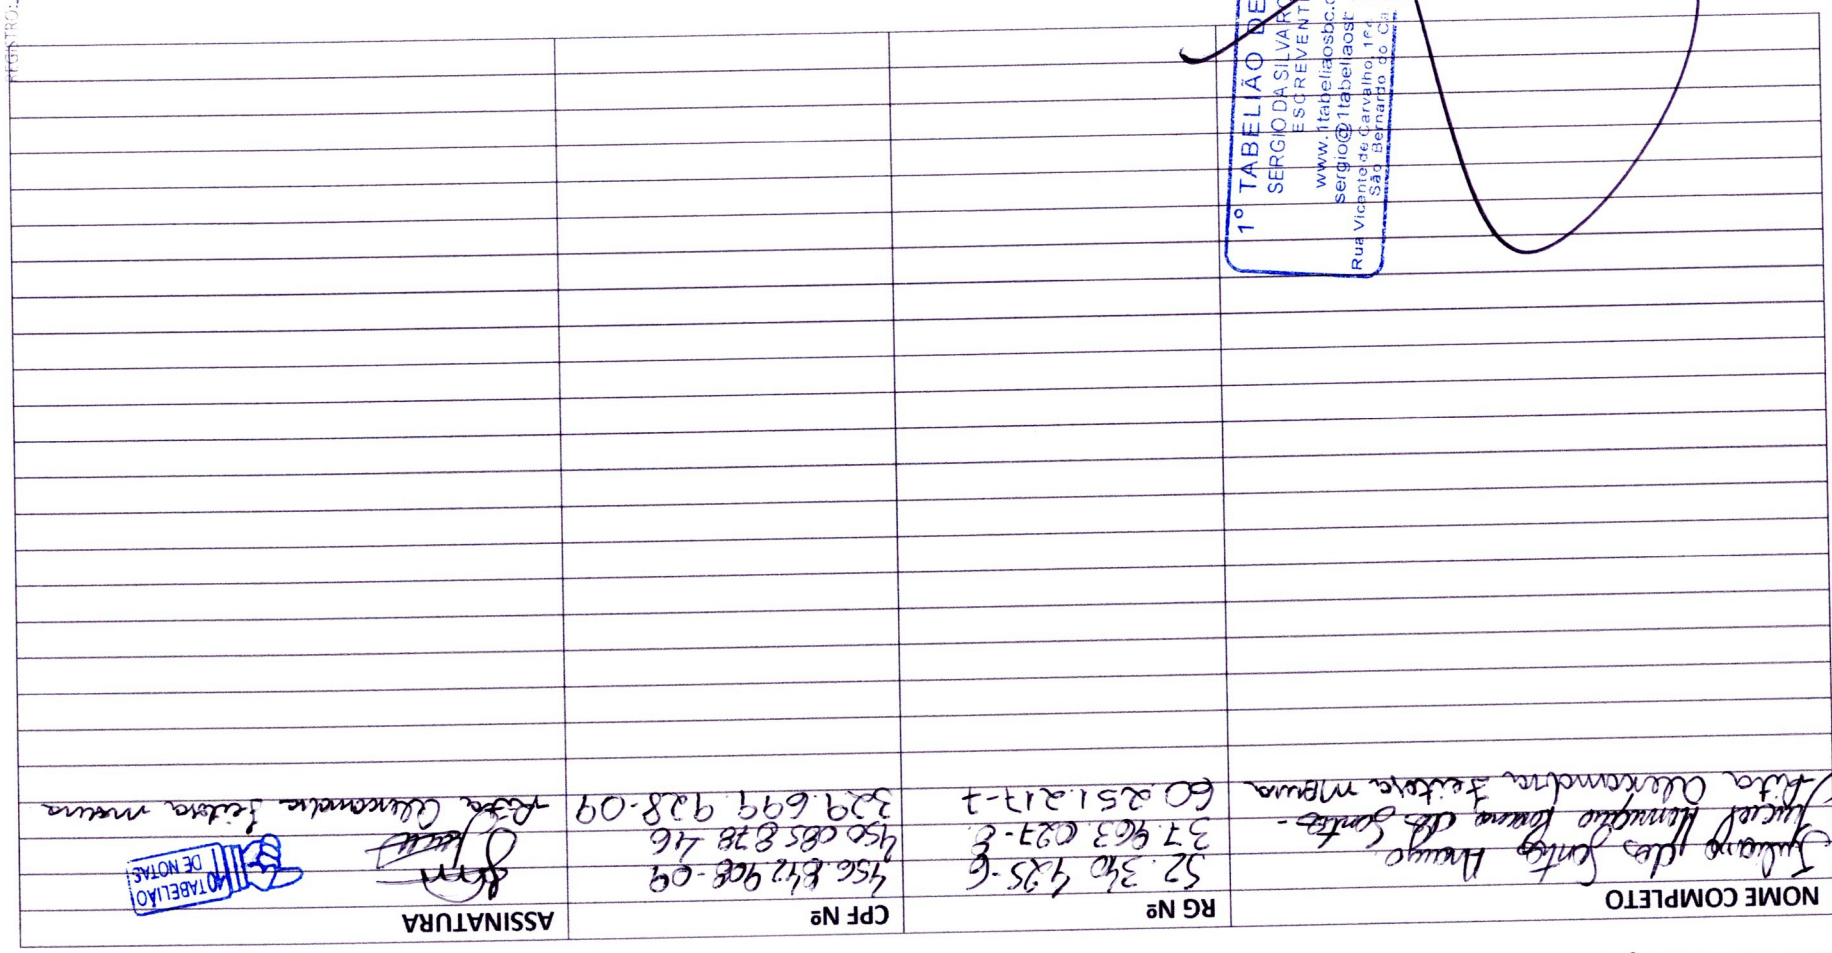 NOME COMPLETO RG Nº CPF Nº ASSINATURA
Juliano dos Santos Araujo 52.340 425-6 456.842908-09
dos Santos - 37.963.027-8 450 085 878 46
Rita Alexandra Feitosa moura 60.251.217-7 329.699.928-09 Rita Alexandra Feitosa moura
TABELIÃO
DE NOTAS
1º TABELIÃO DE
SERGIO DA SILVA RO
ESCREVENT
www.1tabeliaosbc.c
sergio@1tabeliaost
Rua Vicente de Carvalho,
São Bernardo do Ca
REGISTRO: